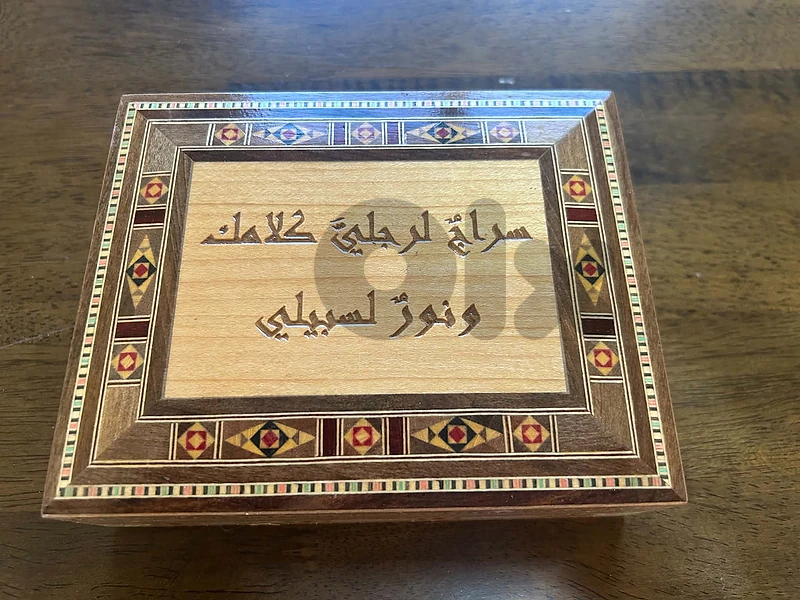 سراجٌ لرجليَّ كلامك
ونورٌ لسبيلي